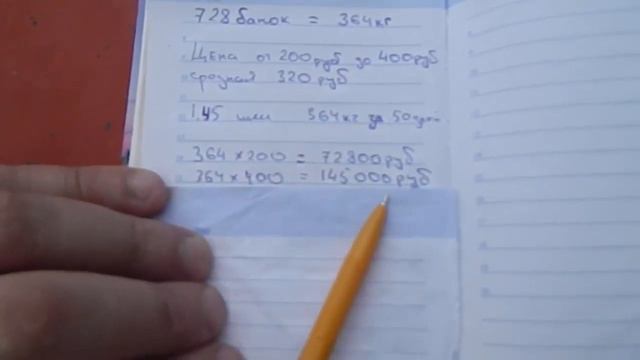 728 банок = 364кг
Цена от 200руб до 400руб
средняя 320 руб
1,45 364кг за 50
364 × 200 = 72800руб
364 × 400 = 145000руб